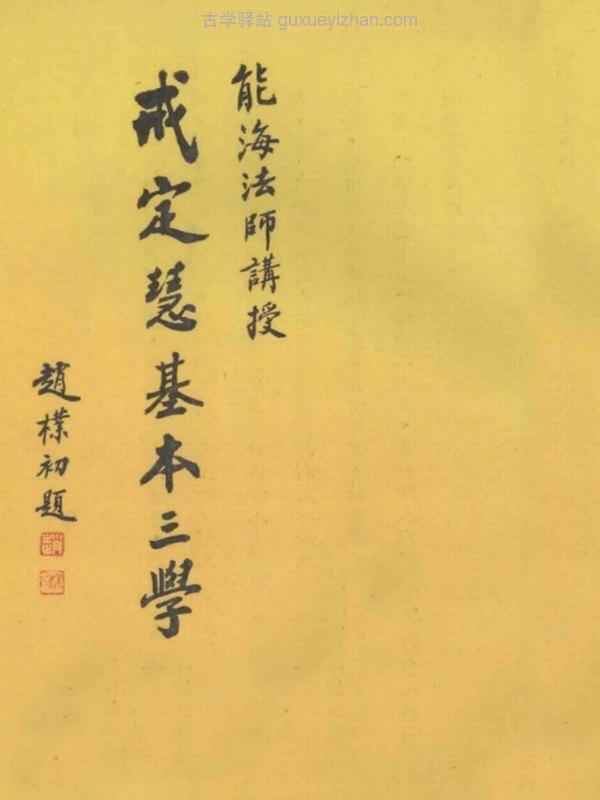 古学驿站 guxueyizhan.com
能海法師講授
戒定慧基本三學
趙樸初題